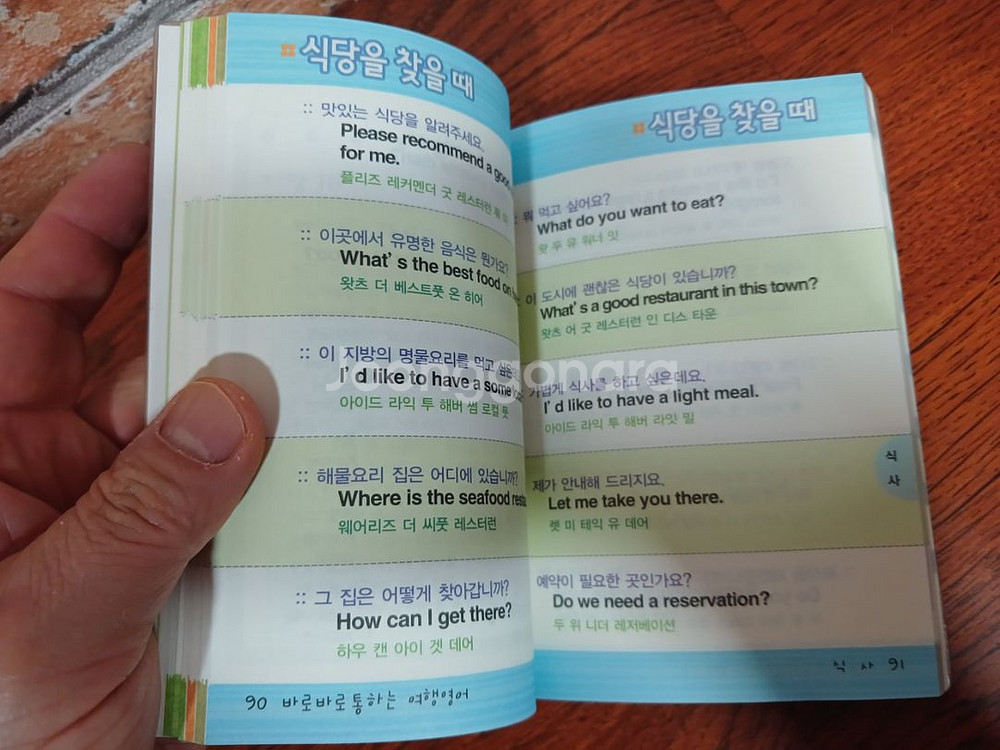 식당을 찾을 때
:: 맛있는 식당을 알려주세요.
Please recommend a good
for me.
플리즈 레커멘더 굿 레스터런
:: 이곳에서 유명한 음식은 뭔가요?
What's the best food on
왓츠 더 베스트풋 온 히어
:: 이 지방의 명물요리를 먹고
I'd like to have a some
아이드 라익 투 해버 썸 로컬 풋
:: 해물요리 집은 어디에 있습니까?
Where is the seafood
웨어리즈 더 씨풋 레스터런
:: 그 집은 어떻게 찾아갑니까?
How can I get there?
하우 캔 아이 겟 데어
90 바로바로통하는 여행영어
식당을 찾을 때
뭐 먹고 싶어요?
What do you want to eat?
왓 두 유 워너 잇
이 도시에 괜찮은 식당이 있습니까?
What's a good restaurant in this town?
왓츠 어 굿 레스터런 인 디스 타운
가볍게 식사를 하고 싶은데요.
I'd like to have a light meal.
아이드 라익 투 해버 라잇 밀
제가 안내해 드리지요.
Let me take you there.
렛 미 테익 유 데어
예약이 필요한 곳인가요?
Do we need a reservation?
두 위 니더 레저베이션
식
사
식 사 91
Joonggonara